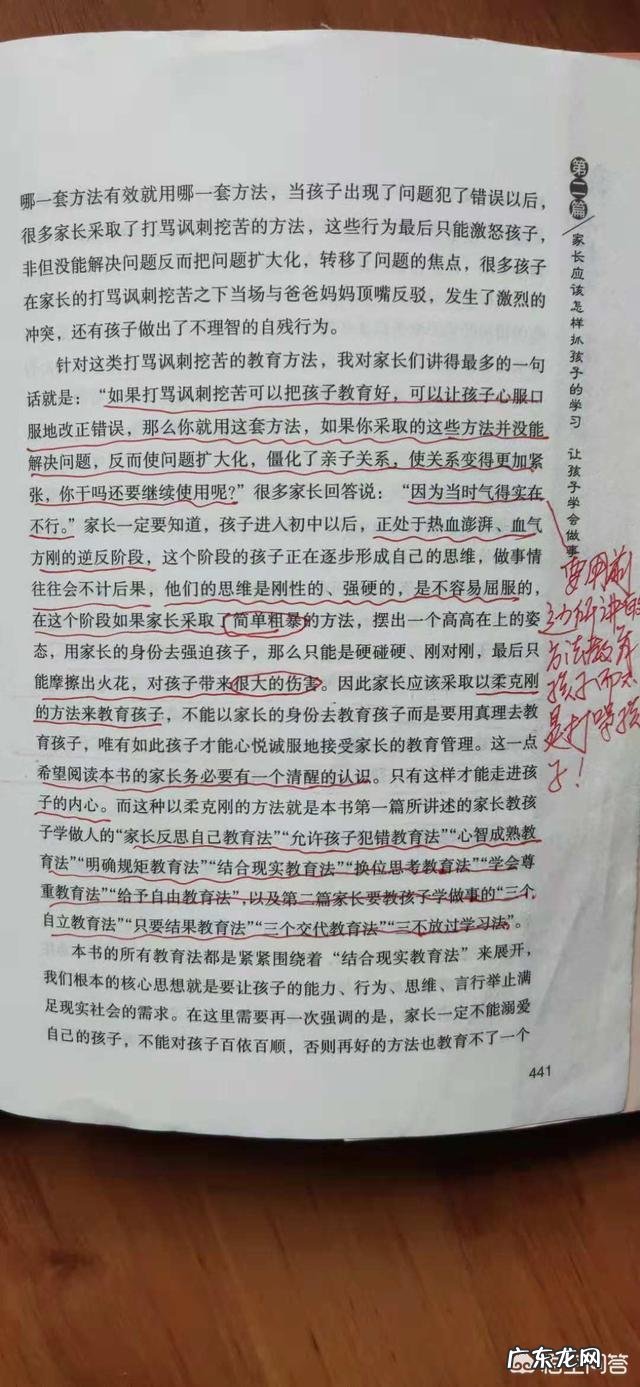 哪一套方法有效就用哪一套方法，当孩子出现了问题犯了错误以后，
很多家长采取了打骂讽刺挖苦的方法，这些行为最后只能激怒孩子，
非但没能解决问题反而把问题扩大化，转移了问题的焦点，很多孩子
在家长的打骂讽刺挖苦之下当场与爸爸妈妈顶嘴反驳，发生了激烈的
冲突，还有孩子做出了不理智的自残行为。
针对这类打骂讽刺挖苦的教育方法，我对家长们讲得最多的一句
话就是：“如果打骂讽刺挖苦可以把孩子教育好，可以让孩子心服口
服地改正错误，那么你就用这套方法，如果你采取的这些方法并没能
解决问题，反而使问题扩大化，僵化了亲子关系，使关系变得更加紧
张，你干吗还要继续使用呢？”很多家长回答说：“因为当时气得实在
不行。”家长一定要知道，孩子进入初中以后，正处于热血澎湃、血气
方刚的逆反阶段，这个阶段的孩子正在逐步形成自己的思维，做事情
往往会不计后果，他们的思维是刚性的、强硬的，是不容易屈服的，
在这个阶段如果家长采取了简单粗暴的方法，摆出一个高高在上的姿
态，用家长的身份去强迫孩子，那么只能是硬碰硬、刚对刚，最后只
能摩擦出火花，对孩子带来很大的伤害。因此家长应该采取以柔克刚
的方法来教育孩子，不能以家长的身份去教育孩子而是要用真理去教
育孩子，唯有如此孩子才能心悦诚服地接受家长的教育管理。这一点
希望阅读本书的家长务必要有一个清醒的认识。只有这样才能走进孩
子的内心。而这种以柔克刚的方法就是本书第一篇所讲述的家长教孩
子学做人的“家长反思自己教育法”“允许孩子犯错教育法”“心智成熟教
育法”“明确规矩教育法”“结合现实教育法”“换位思考教育法”“学会尊
重教育法”“给予自由教育法”，以及第二篇家长要教孩子学做事的“三个
自立教育法”“只要结果教育法”“三个交代教育法”“三不放过学习法”。
本书的所有教育法都是紧紧围绕着“结合现实教育法”来展开，
我们根本的核心思想就是要让孩子的能力、行为、思维、言行举止满
足现实社会的需求。在这里需要再一次强调的是，家长一定不能溺爱
自己的孩子，不能对孩子百依百顺，否则再好的方法也教育不了一个
441
第二篇
家长应该怎样抓孩子的学习 让孩子学会做事
要用前
边所讲的
方法教育
孩子而不
是打骂孩
子！
悟空问答
广东龙网